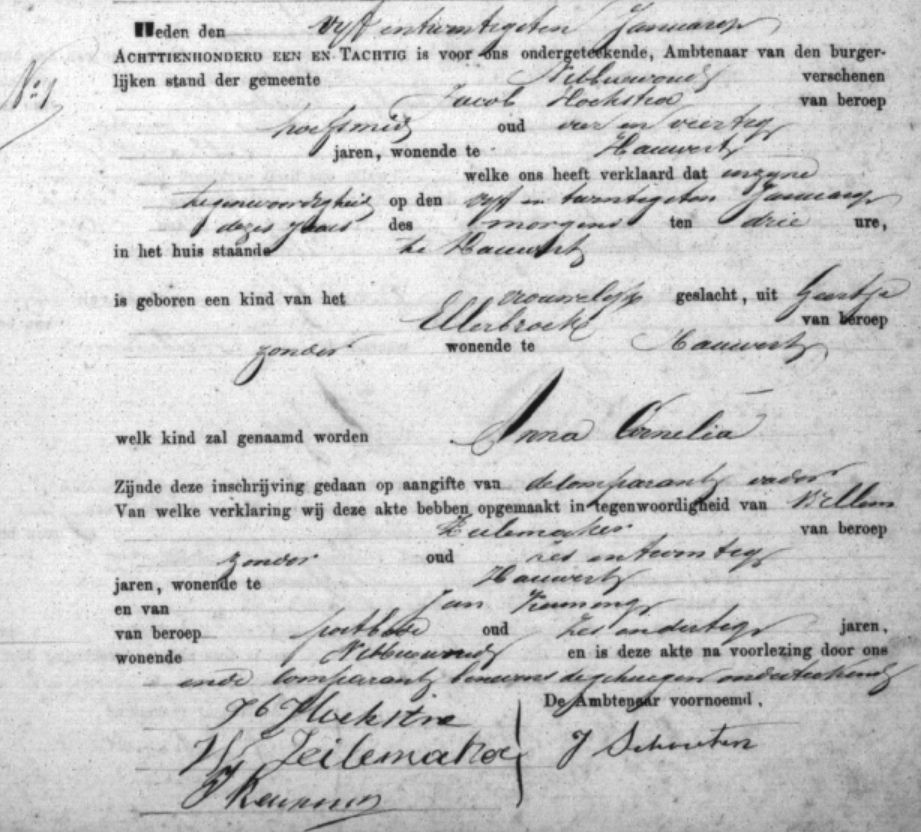 Heden den vyf en twentigsten Januarij
ACHTTIENHONDERD EEN EN TACHTIG is voor ons ondergeteekende, Ambtenaar van den burger-
lijken stand der gemeente Nibbixwoud verschenen
No 1
Jacob Hoekstra van beroep
hoefsmid oud vier en veertig
jaren, wonende te Hauwert
welke ons heeft verklaard dat in zyne
tegenwoordigheid op den vyf en twentigsten Januarij
dezes jaars des morgens ten drie ure,
in het huis staande te Hauwert
is geboren een kind van het vrouwelijk geslacht, uit Geertje
Ellerbroek van beroep
zonder wonende te Hauwert
welk kind zal genaamd worden Anna Cornelia
Zijnde deze inschrijving gedaan op aangifte van de comparant vader
Van welke verklaring wij deze akte hebben opgemaakt in tegenwoordigheid van Willem
Zeilemaker van beroep
zonder oud zes en twentig
jaren, wonende te Hauwert
en van Jan
van beroep postbode oud zes en dertig jaren,
wonende Nibbixwoud en is deze akte na voorlezing door ons
en de comparant benevens de getuigen onderteekend
De Ambtenaar voornoemd,
Hoekstra
W Zeilemaker
J Schouten